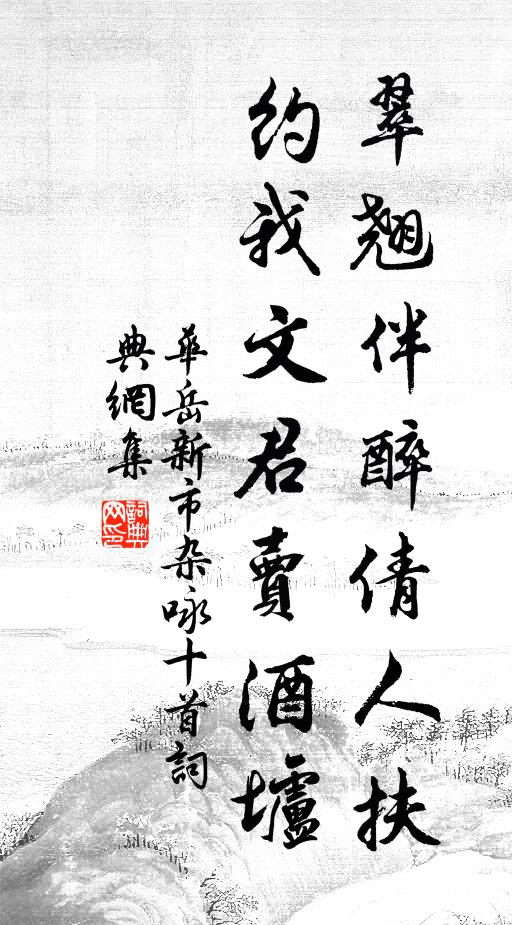 翠翹伴醉倩人扶
約我文君賣酒壚
華岳新市杂咏十首詞
典網集
詞典
网印